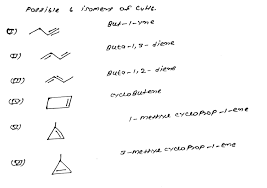 Possible 6 isomers of C4H6.
(I) But-1-yne
(II) Buta-1,3-diene
(III) Buta-1,2-diene
(IV) cyclobutene
(V) 1-methyl cycloprop-1-ene
(VI) 3-methyl cycloprop-1-ene